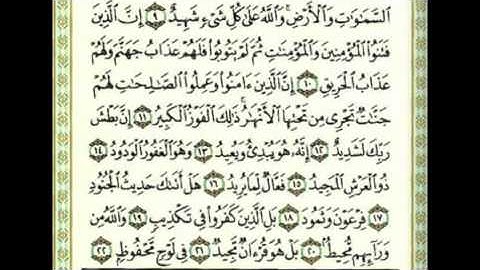 ٱلسَّمَٰوَٰتِ وَٱلْأَرْضِ ۚ وَٱللَّهُ عَلَىٰ كُلِّ شَىْءٍ شَهِيدٌ ٩ إِنَّ ٱلَّذِينَ
فَتَنُوا۟ ٱلْمُؤْمِنِينَ وَٱلْمُؤْمِنَٰتِ ثُمَّ لَمْ يَتُوبُوا۟ فَلَهُمْ عَذَابُ جَهَنَّمَ وَلَهُمْ
عَذَابُ ٱلْحَرِيقِ ١٠ إِنَّ ٱلَّذِينَ ءَامَنُوا۟ وَعَمِلُوا۟ ٱلصَّٰلِحَٰتِ لَهُمْ
جَنَّٰتٌ تَجْرِى مِن تَحْتِهَا ٱلْأَنْهَٰرُ ۚ ذَٰلِكَ ٱلْفَوْزُ ٱلْكَبِيرُ ١١ إِنَّ بَطْشَ
رَبِّكَ لَشَدِيدٌ ١٢ إِنَّهُۥ هُوَ يُبْدِئُ وَيُعِيدُ ١٣ وَهُوَ ٱلْغَفُورُ ٱلْوَدُودُ ١٤
ذُو ٱلْعَرْشِ ٱلْمَجِيدُ ١٥ فَعَّالٌ لِّمَا يُرِيدُ ١٦ هَلْ أَتَىٰكَ حَدِيثُ ٱلْجُنُودِ
١٧ فِرْعَوْنَ وَثَمُودَ ١٨ بَلِ ٱلَّذِينَ كَفَرُوا۟ فِى تَكْذِيبٍ ١٩ وَٱللَّهُ مِن
وَرَآئِهِم مُّحِيطٌۢ ٢٠ بَلْ هُوَ قُرْءَانٌ مَّجِيدٌ ٢١ فِى لَوْحٍ مَّحْفُوظٍۭ ٢٢